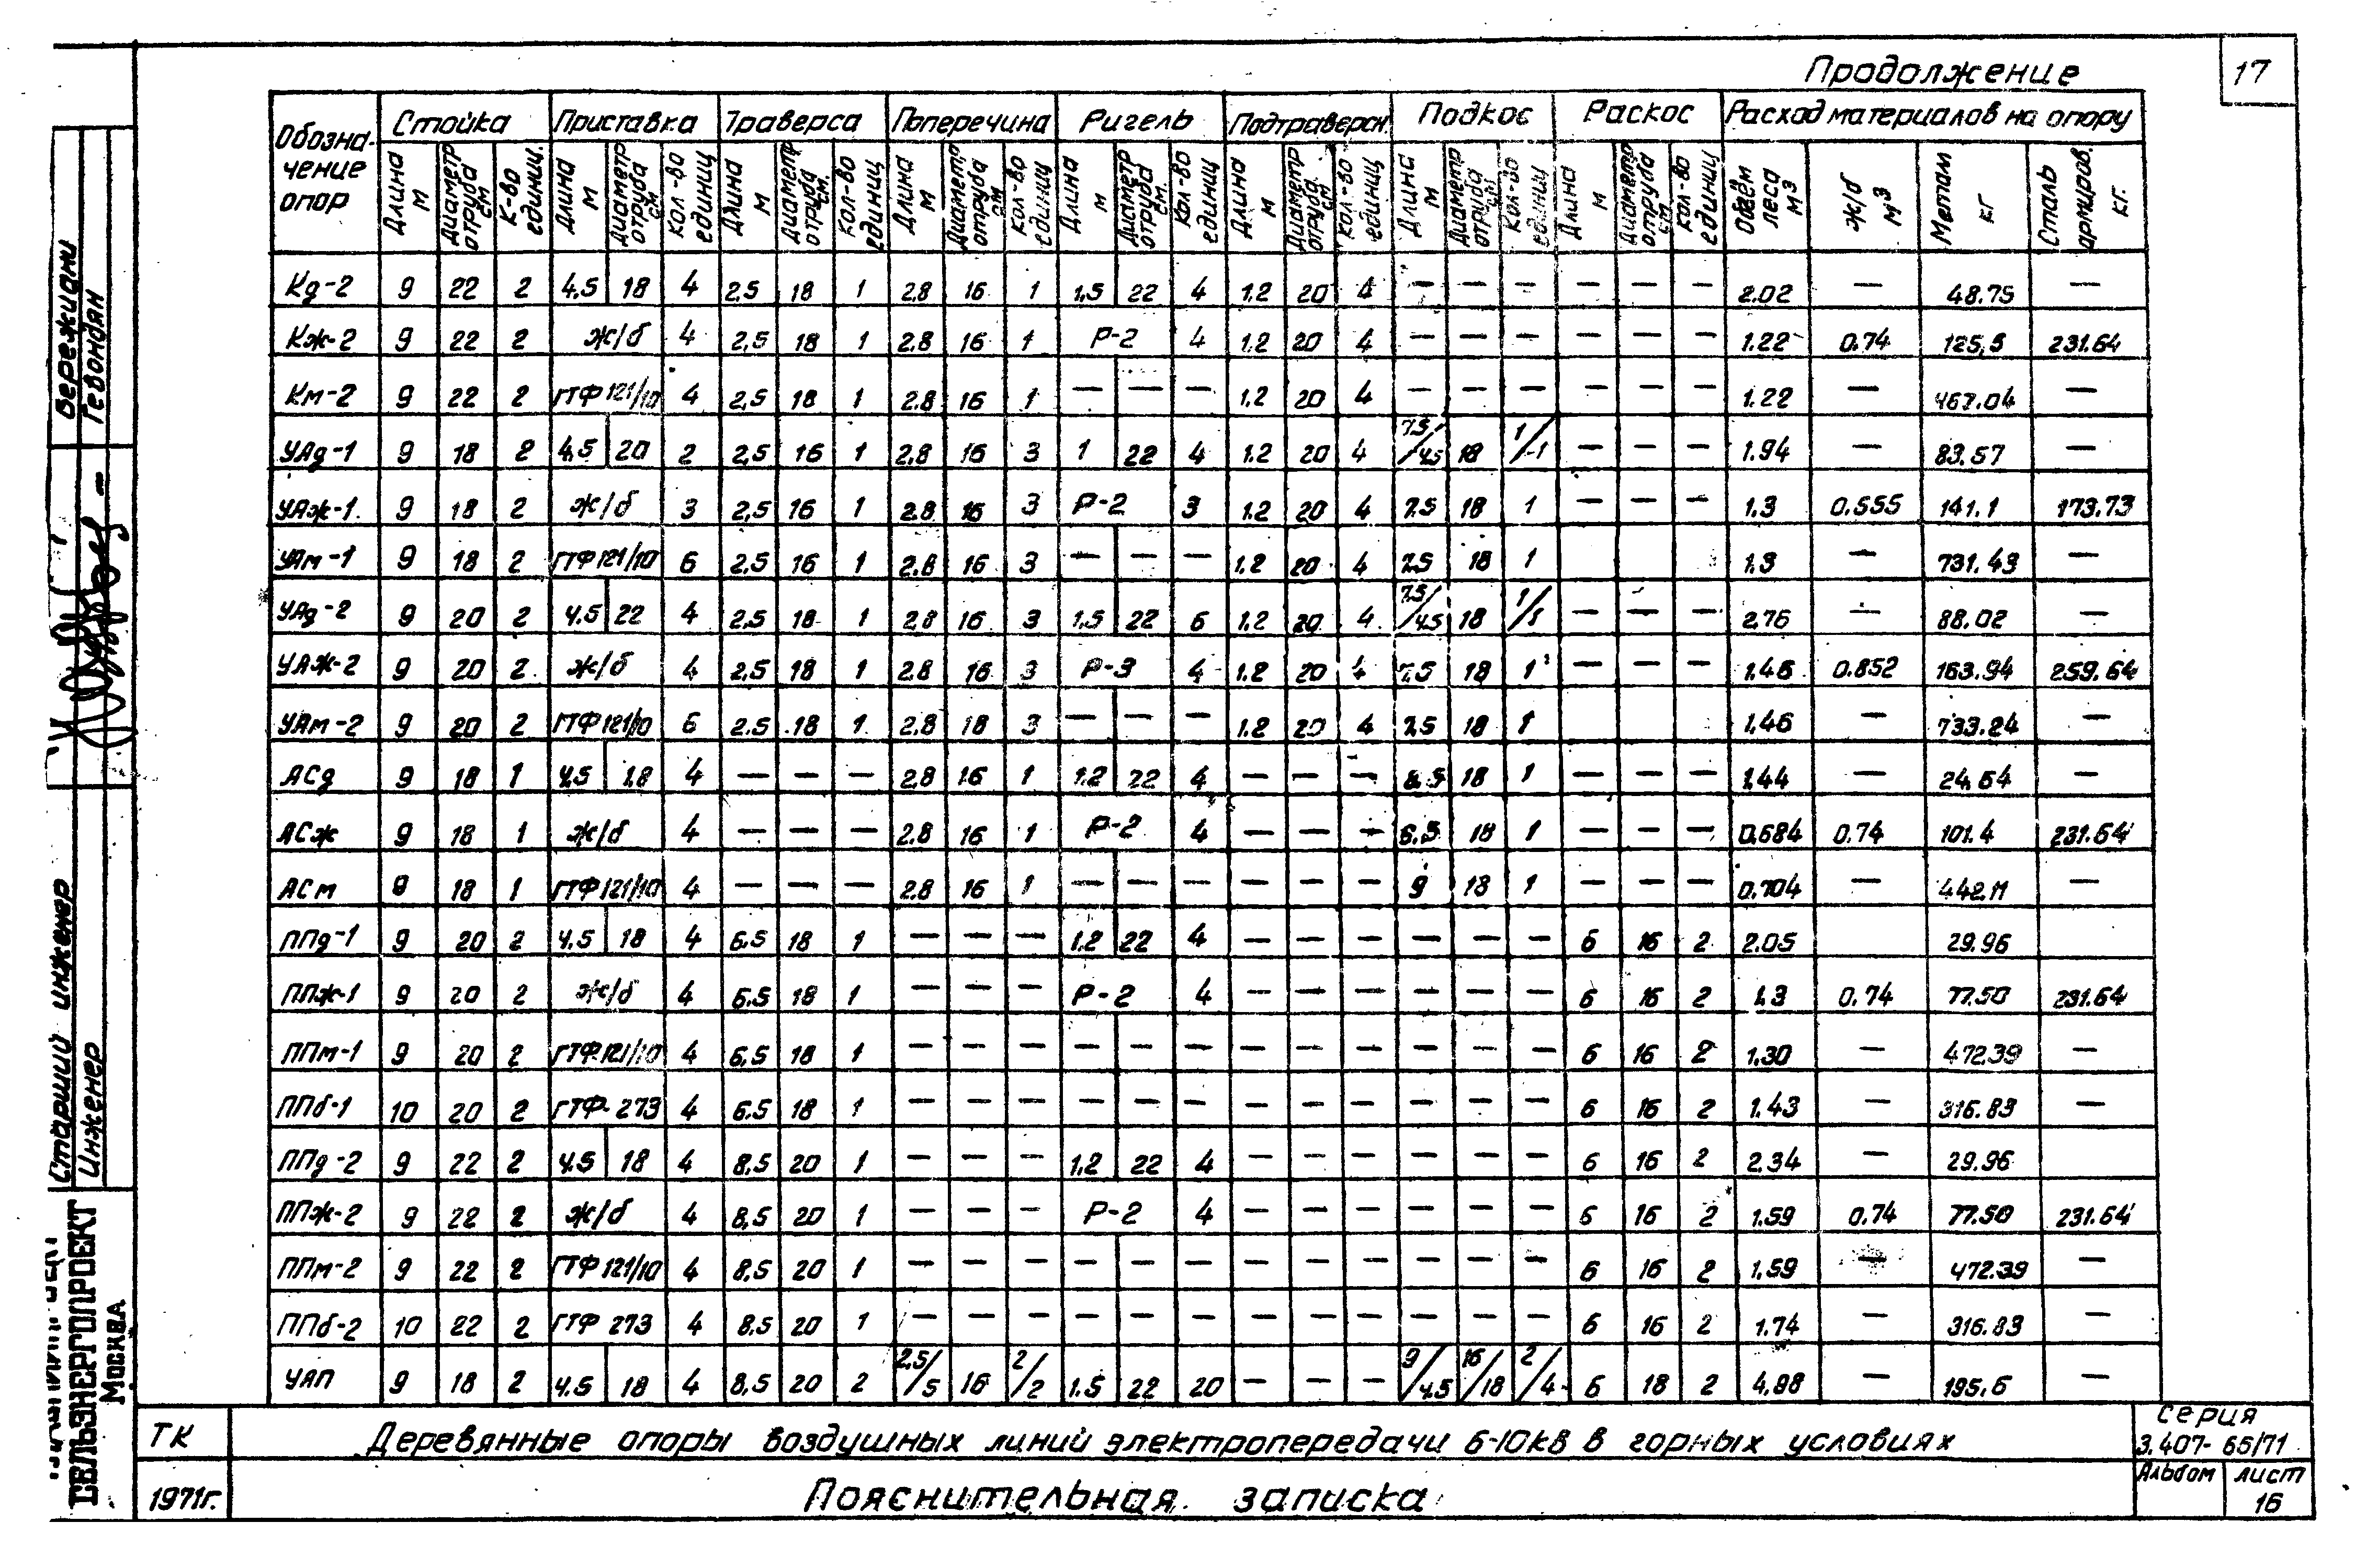 Продолжение
17
Обозна-чение опор | Стойка | Приставка | Траверса | Поперечина | Ригель | Подтраверсн. | Подкос | Раскос | Расход материалов на опору
Длина м | Диаметр отруба см | К-во единиц. | Длина м | Диаметр отруба см | Кол-во единиц | Длина м | Диаметр отруба см. | Кол-во единиц | Длина м | Диаметр отруба см | Кол-во единиц | Длина м | Диаметр отруба см. | Кол-во единиц | Длина м | Диаметр отруба см | Кол-во единиц | Длина м | Диаметр отруба см | Кол-во единиц | Длина м | Диаметр отруба см | Кол-во единиц | Объём леса м3 | ж/б м3 | Металл кг | Сталь армиров. кг.
Кд-2 9 22 2 4.5 18 4 2,5 18 1 2.8 16 1 1,5 22 4 1.2 20 4 — — — — — — 2.02 — 48.75 —
Кж-2 9 22 2 ж/б 4 2,5 18 1 2.8 16 1 Р-2 4 1.2 20 4 — — — — — — 1.22 0.74 125,5 231.64
Км-2 9 22 2 ГТФ 121/10 4 2,5 18 1 2.8 16 1 — — — 1.2 20 4 — — — — — — 1.22 — 467.04 —
УАд-1 9 18 2 4,5 20 2 2,5 16 1 2.8 16 3 1 22 4 1.2 20 4 7.5/4.5 18 1/1 — — — 1.94 — 83.57 —
УАж-1 9 18 2 ж/б 3 2,5 16 1 2.8 16 3 Р-2 3 1.2 20 4 7.5 18 1 — — — 1.3 0.555 141.1 173.73
УАм-1 9 18 2 ГТФ 121/10 6 2.5 16 1 2.8 16 3 — — — 1.2 20 4 7.5 18 1 1.3 — 731.43 —
УАд-2 9 20 2 4.5 22 4 2.5 18 1 2.8 16 3 1.5 22 6 1.2 20 4 7.5/4.5 18 1/1 — — — 2.76 — 88.02 —
УАж-2 9 20 2 ж/б 4 2.5 18 1 2.8 16 3 Р-3 4 1.2 20 4 7.5 18 1 — — — 1.46 0.852 163.94 259.64
УАм-2 9 20 2 ГТФ 121/10 6 2.5 18 1 2.8 18 3 — — — 1.2 20 4 7.5 18 1 1.46 — 733.24 —
АСд 9 18 1 4.5 18 4 — — — 2.8 16 1 1.2 22 4 — — — 6.5 18 1 — — — 1.44 — 24.64 —
АСж 9 18 1 ж/б 4 — — — 2.8 16 1 Р-2 4 — — — 6.5 18 1 — — — 0.684 0.74 101.4 231.64
АСм 9 18 1 ГТФ 121/10 4 — — — 2.8 16 1 — — — — — — 9 18 1 — — — 0.704 — 442.11 —
ППд-1 9 20 2 4.5 18 4 6.5 18 1 — — — 1.2 22 4 — — — — — — 6 16 2 2.05 29.96
ППж-1 9 20 2 ж/б 4 6.5 18 1 — — — Р-2 4 — — — — — — 6 16 2 1.3 0.74 77.50 231.64
ППм-1 9 20 2 ГТФ 121/10 4 6.5 18 1 — — — — — — — — — — — — 6 16 2 1.30 — 472.39 —
ППб-1 10 20 2 ГТФ-273 4 6.5 18 1 — — — — — — — — — — — — 6 16 2 1.43 — 316.83 —
ППд-2 9 22 2 4.5 18 4 8.5 20 1 — — — 1.2 22 4 — — — — — — 6 16 2 2.34 — 29.96
ППж-2 9 22 2 ж/б 4 8.5 20 1 — — — Р-2 4 — — — — — — 6 16 2 1.59 0.74 77.50 231.64
ППм-2 9 22 2 ГТФ 121/10 4 8.5 20 1 — — — — — — — — — — — — 6 16 2 1.59 — 472.39 —
ППб-2 10 22 2 ГТФ 273 4 8.5 20 1 — — — — — — — — — — — — 6 16 2 1.74 — 316.83 —
УАП 9 18 2 4.5 18 4 8.5 20 2 2.5/5 16 2/2 1.5 22 20 — — — 9/4.5 16/18 2/4 6 18 2 4.98 — 195.6 —
ТК
Деревянные опоры воздушных линий электропередачи 6-10кв в горных условиях
Серия
3.407-65/71
1971г.
Пояснительная записка
Альбом
лист
16
Старший инженер
Инженер
Вережиани
Гевондян
СЕЛЬЭНЕРГОПРОЕКТ
Москва